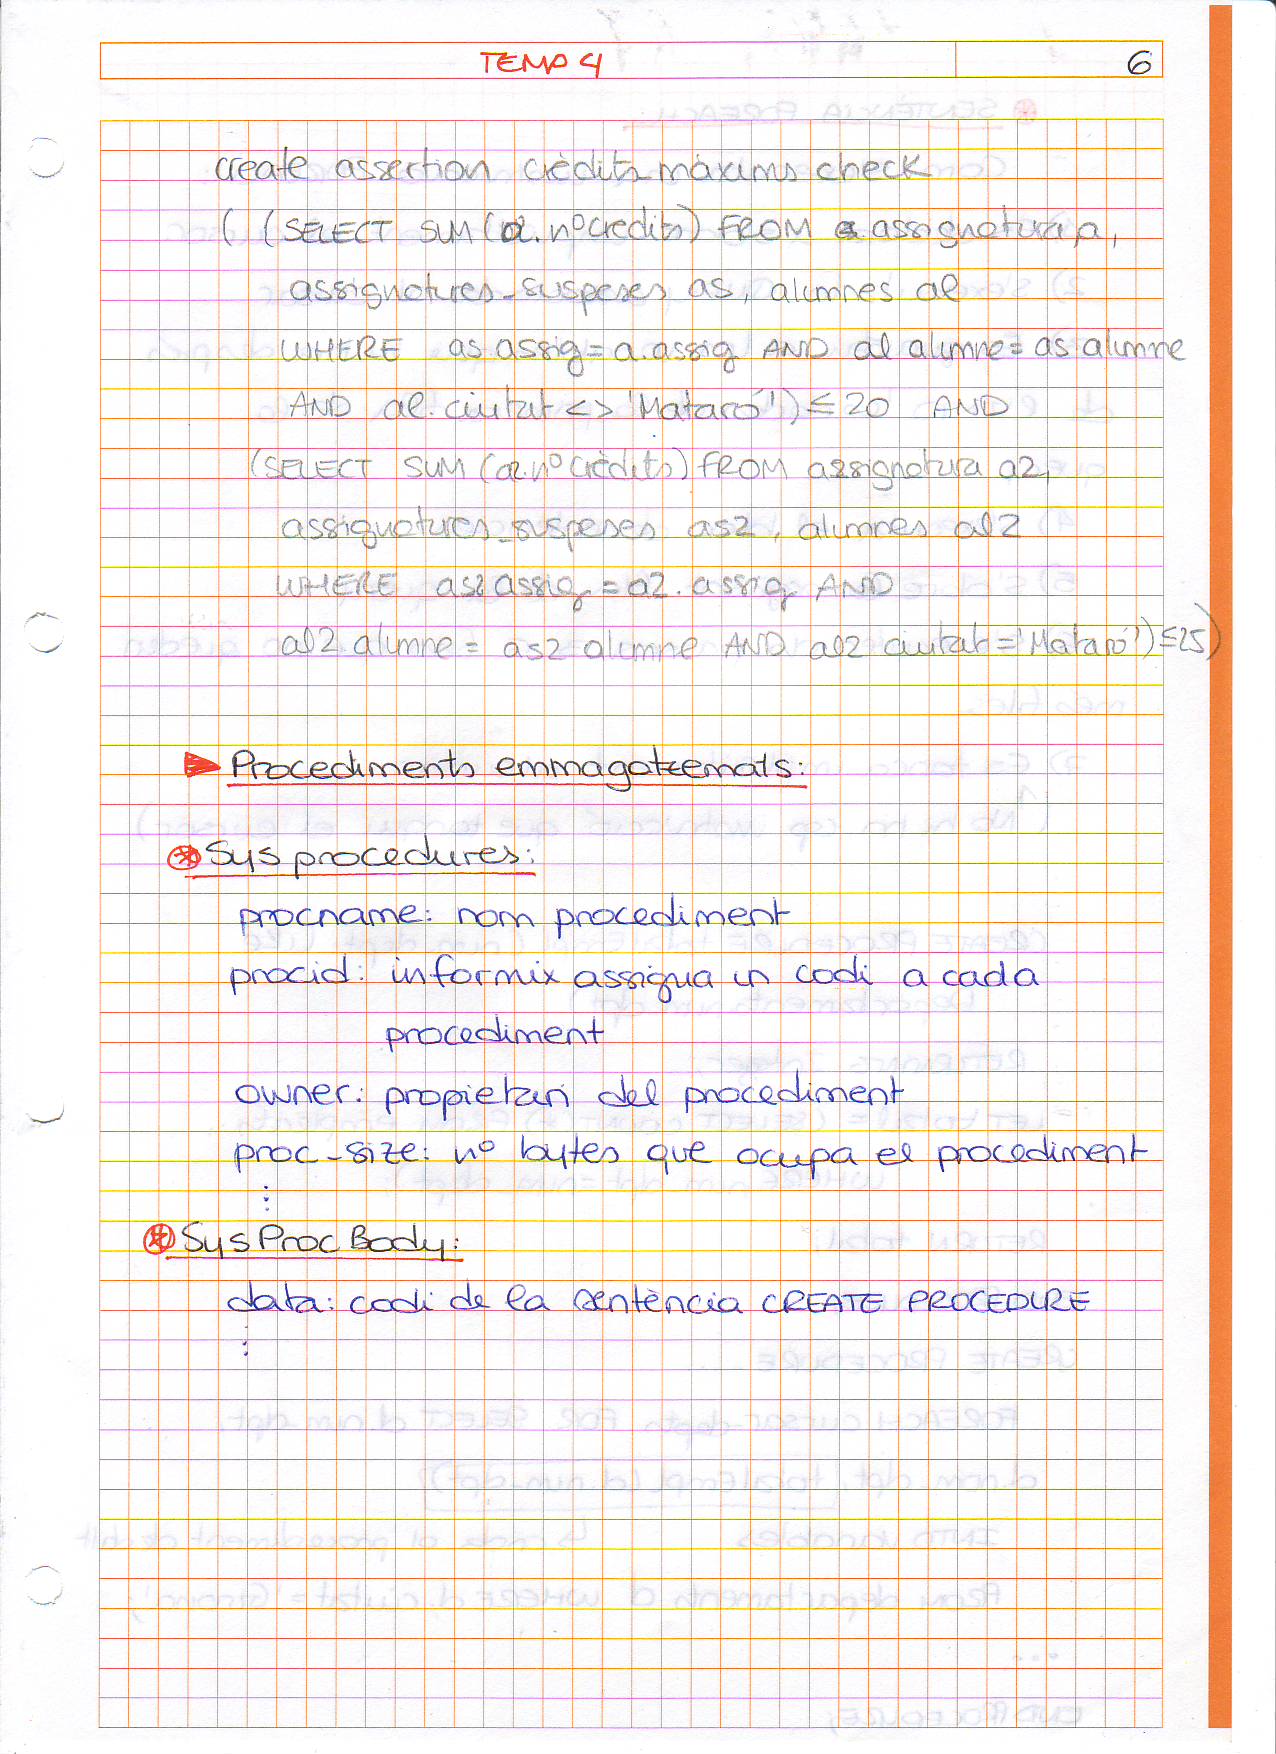 TEMA 4
6
create assertion crèdits_màxims check
( (SELECT SUM(a.nºCrèdits) FROM assignatura a,
assignatures_suspeses as, alumnes al
WHERE as.assig = a.assig AND al.alumne = as.alumne
AND al.ciutat <> 'Mataró') ≤ 20 AND
(SELECT SUM(a2.nºCrèdits) FROM assignatura a2,
assignatures_suspeses as2, alumnes al2
WHERE as2.assig = a2.assig AND
al2.alumne = as2.alumne AND al2.ciutat = 'Mataró') ≤ 25)
Procediments emmagatzemats:
Sysprocedures:
procname: nom procediment
procid: informix assigna un codi a cada
procediment
owner: propietari del procediment
proc_size: nº bytes que ocupa el procediment
⋮
SysProcBody:
data: codi de la sentència CREATE PROCEDURE
⋮